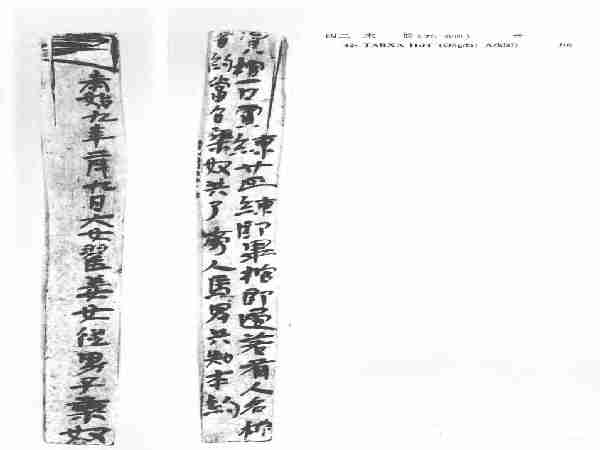 泰始九年二月九日大女翟姜女從男子欒奴
買棺一口賈練廿匹練即畢棺即過若有人名棺
者約當召欒奴共了旁人馬男共知本約
四二 木
42.